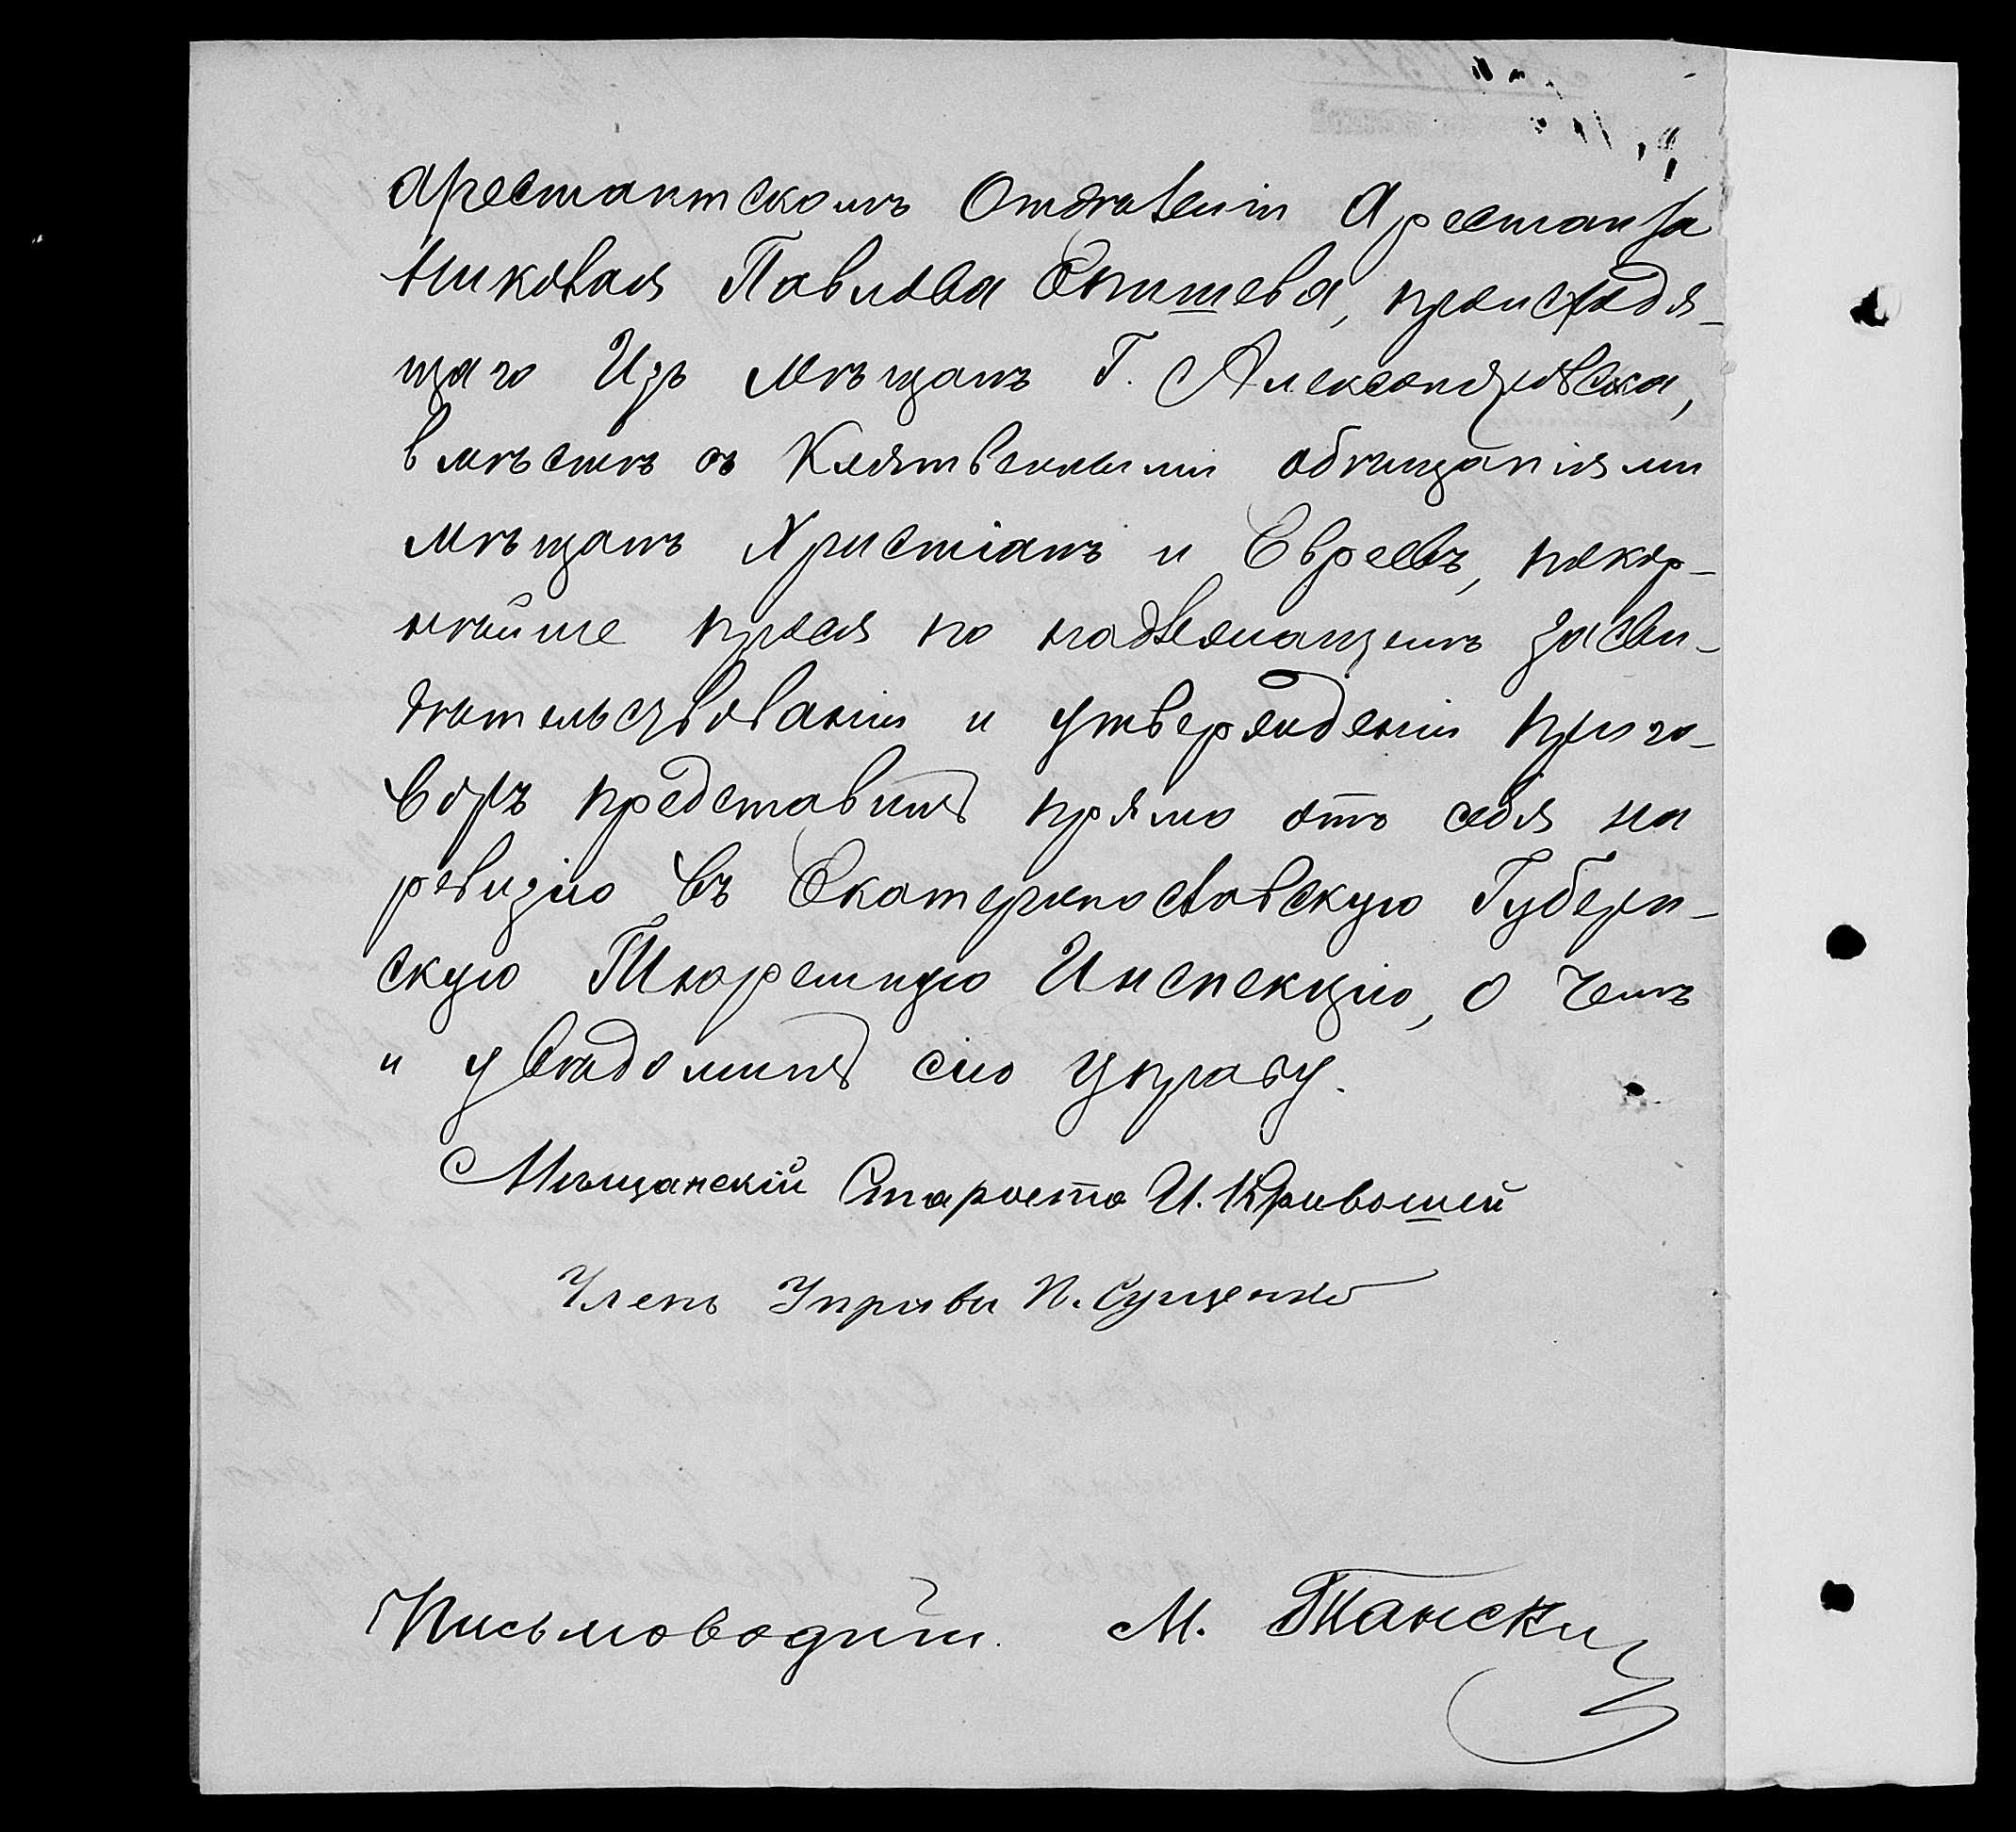 Арестантскомъ Отдѣленіи Арестанта
Николая Павлова Епишева, происходя-
щаго Изъ Мѣщанъ Г. Александровска,
вмѣстѣ съ Клятвенными обѣщаніями
Мѣщанъ Христіанъ и Евреевъ, покор-
нѣйше прося по надлежащемъ засви-
дѣтельствованіи и утвержденіи приго-
воръ представить прямо отъ себя на
ревизію въ Екатеринославскую Губерн-
скую Тюремную Инспекцію, о чемъ
и увѣдомить сію управу.
Мѣщанскій Староста И. Кривошей
Членъ Управы П. Сущенко
Письмоводит. М. Тански